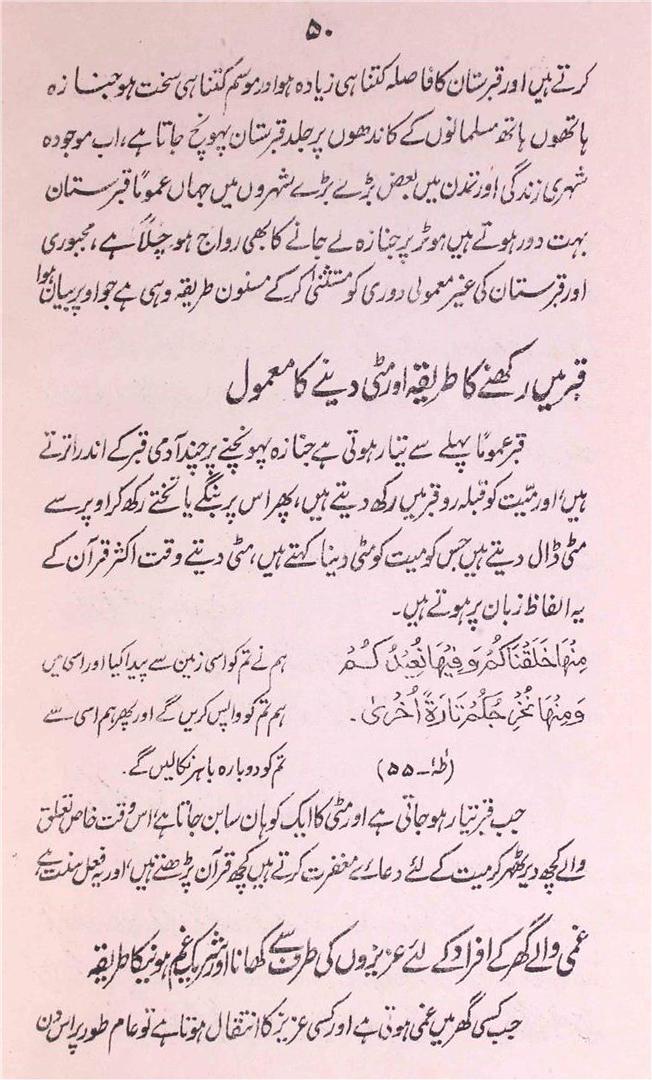 ۵۰
کرتے ہیں اور قبرستان کا فاصلہ کتنا ہی زیادہ ہو اور موسم کتنا ہی سخت ہو جنازہ
ہاتھوں ہاتھ مسلمانوں کے کاندھوں پر جلد قبرستان پہونچ جاتا ہے، اب موجودہ
شہری زندگی اور تمدن میں بعض بڑے بڑے شہروں میں جہاں عموماً قبرستان
بہت دور ہوتے ہیں موٹر پر جنازہ لے جانے کا بھی رواج ہو چلا ہے، مجبوری
اور قبرستان کی غیر معمولی دوری کو مستثنیٰ کر کے مسنون طریقہ وہی ہے جو اوپر بیان ہوا
قبر میں رکھنے کا طریقہ اور مٹی دینے کا معمول
قبر عموماً پہلے سے تیار ہوتی ہے جنازہ پہونچنے پر چند آدمی قبر کے اندر اترتے
ہیں، اور میّت کو قبلہ رو قبر میں رکھ دیتے ہیں، پھر اس پر بنگے یا تختے رکھ کر اوپر سے
مٹی ڈال دیتے ہیں جس کو میت کو مٹی دینا کہتے ہیں، مٹی دیتے وقت اکثر قرآن کے
یہ الفاظ زبان پر ہوتے ہیں۔
مِنْهَا خَلَقْنَاكُمْ وَفِيْهَا نُعِيْدُكُمْ
وَمِنْهَا نُخْرِجُكُمْ تَارَةً اُخْرٰى۔
(طٰہٰ۔ ۵۵)
ہم نے تم کو اسی زمین سے پیدا کیا اور اسی میں
ہم تم کو واپس کریں گے اور پھر ہم اسی سے
تم کو دوبارہ باہر نکالیں گے۔
جب قبر تیار ہو جاتی ہے اور مٹی کا ایک کوہان سا بن جاتا ہے، اس وقت خاص تعلق
والے کچھ دیر ٹھہر کر میت کے لئے دعائے مغفرت کرتے ہیں کچھ قرآن پڑھتے ہیں، اور یہ فعل سنت ہے
غمی والے گھر کے افراد کے لئے عزیزوں کی طرف سے کھانا اور شریک غم ہونیکا طریقہ
جب کسی گھر میں غمی ہوتی ہے اور کسی عزیز کا انتقال ہوتا ہے تو عام طور پر اس دن